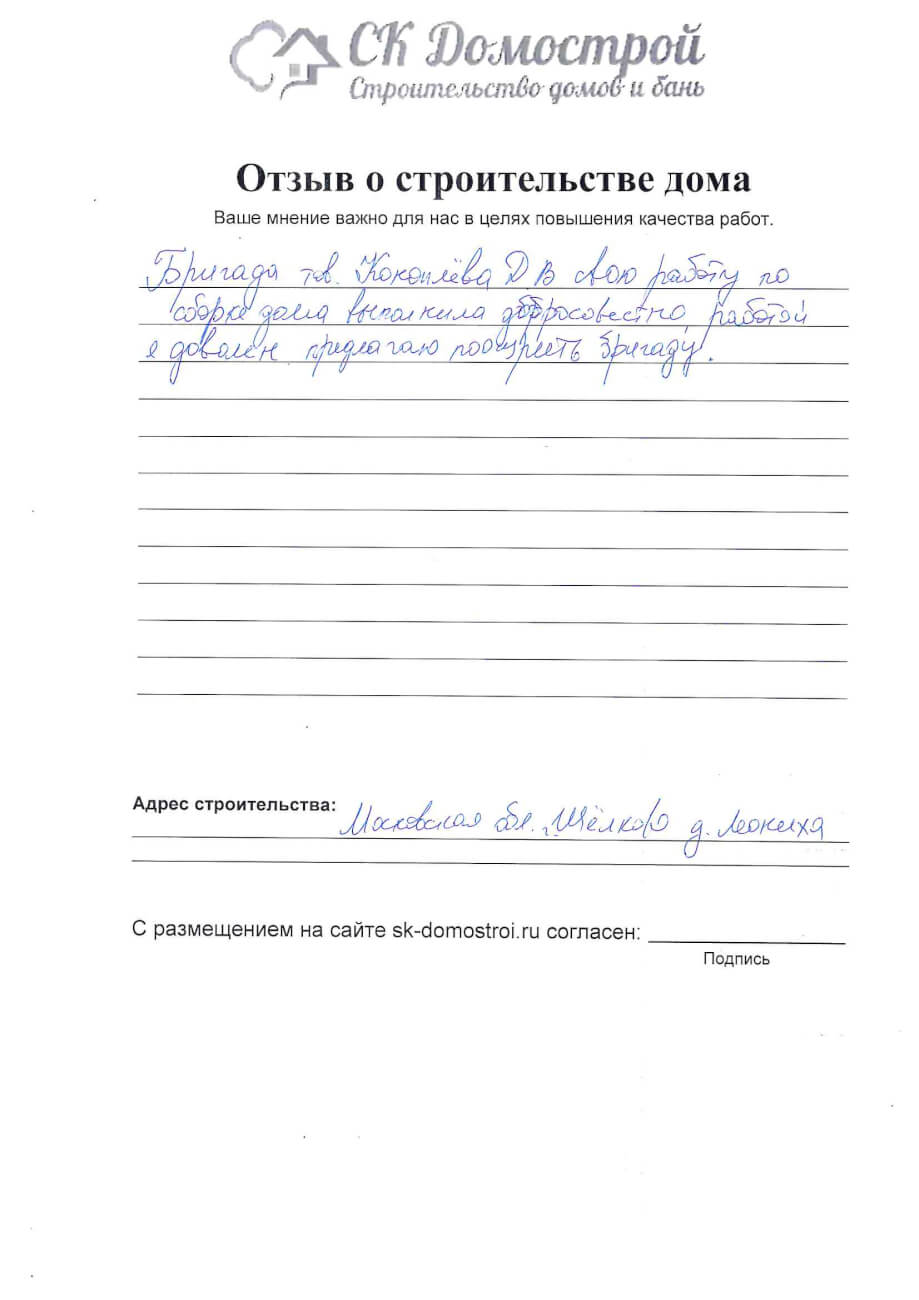 СК Домострой
Строительство домов и бань
Отзыв о строительстве дома
Ваше мнение важно для нас в целях повышения качества работ.
Бригада тов. Кокоплёва Д В свою работу по
сборке дома выполнила добросовестно, работой
я доволен предлагаю поощрить бригаду.
Адрес строительства:
Московская обл. г. Щёлково д. Леониха
С размещением на сайте sk-domostroi.ru согласен:
Подпись